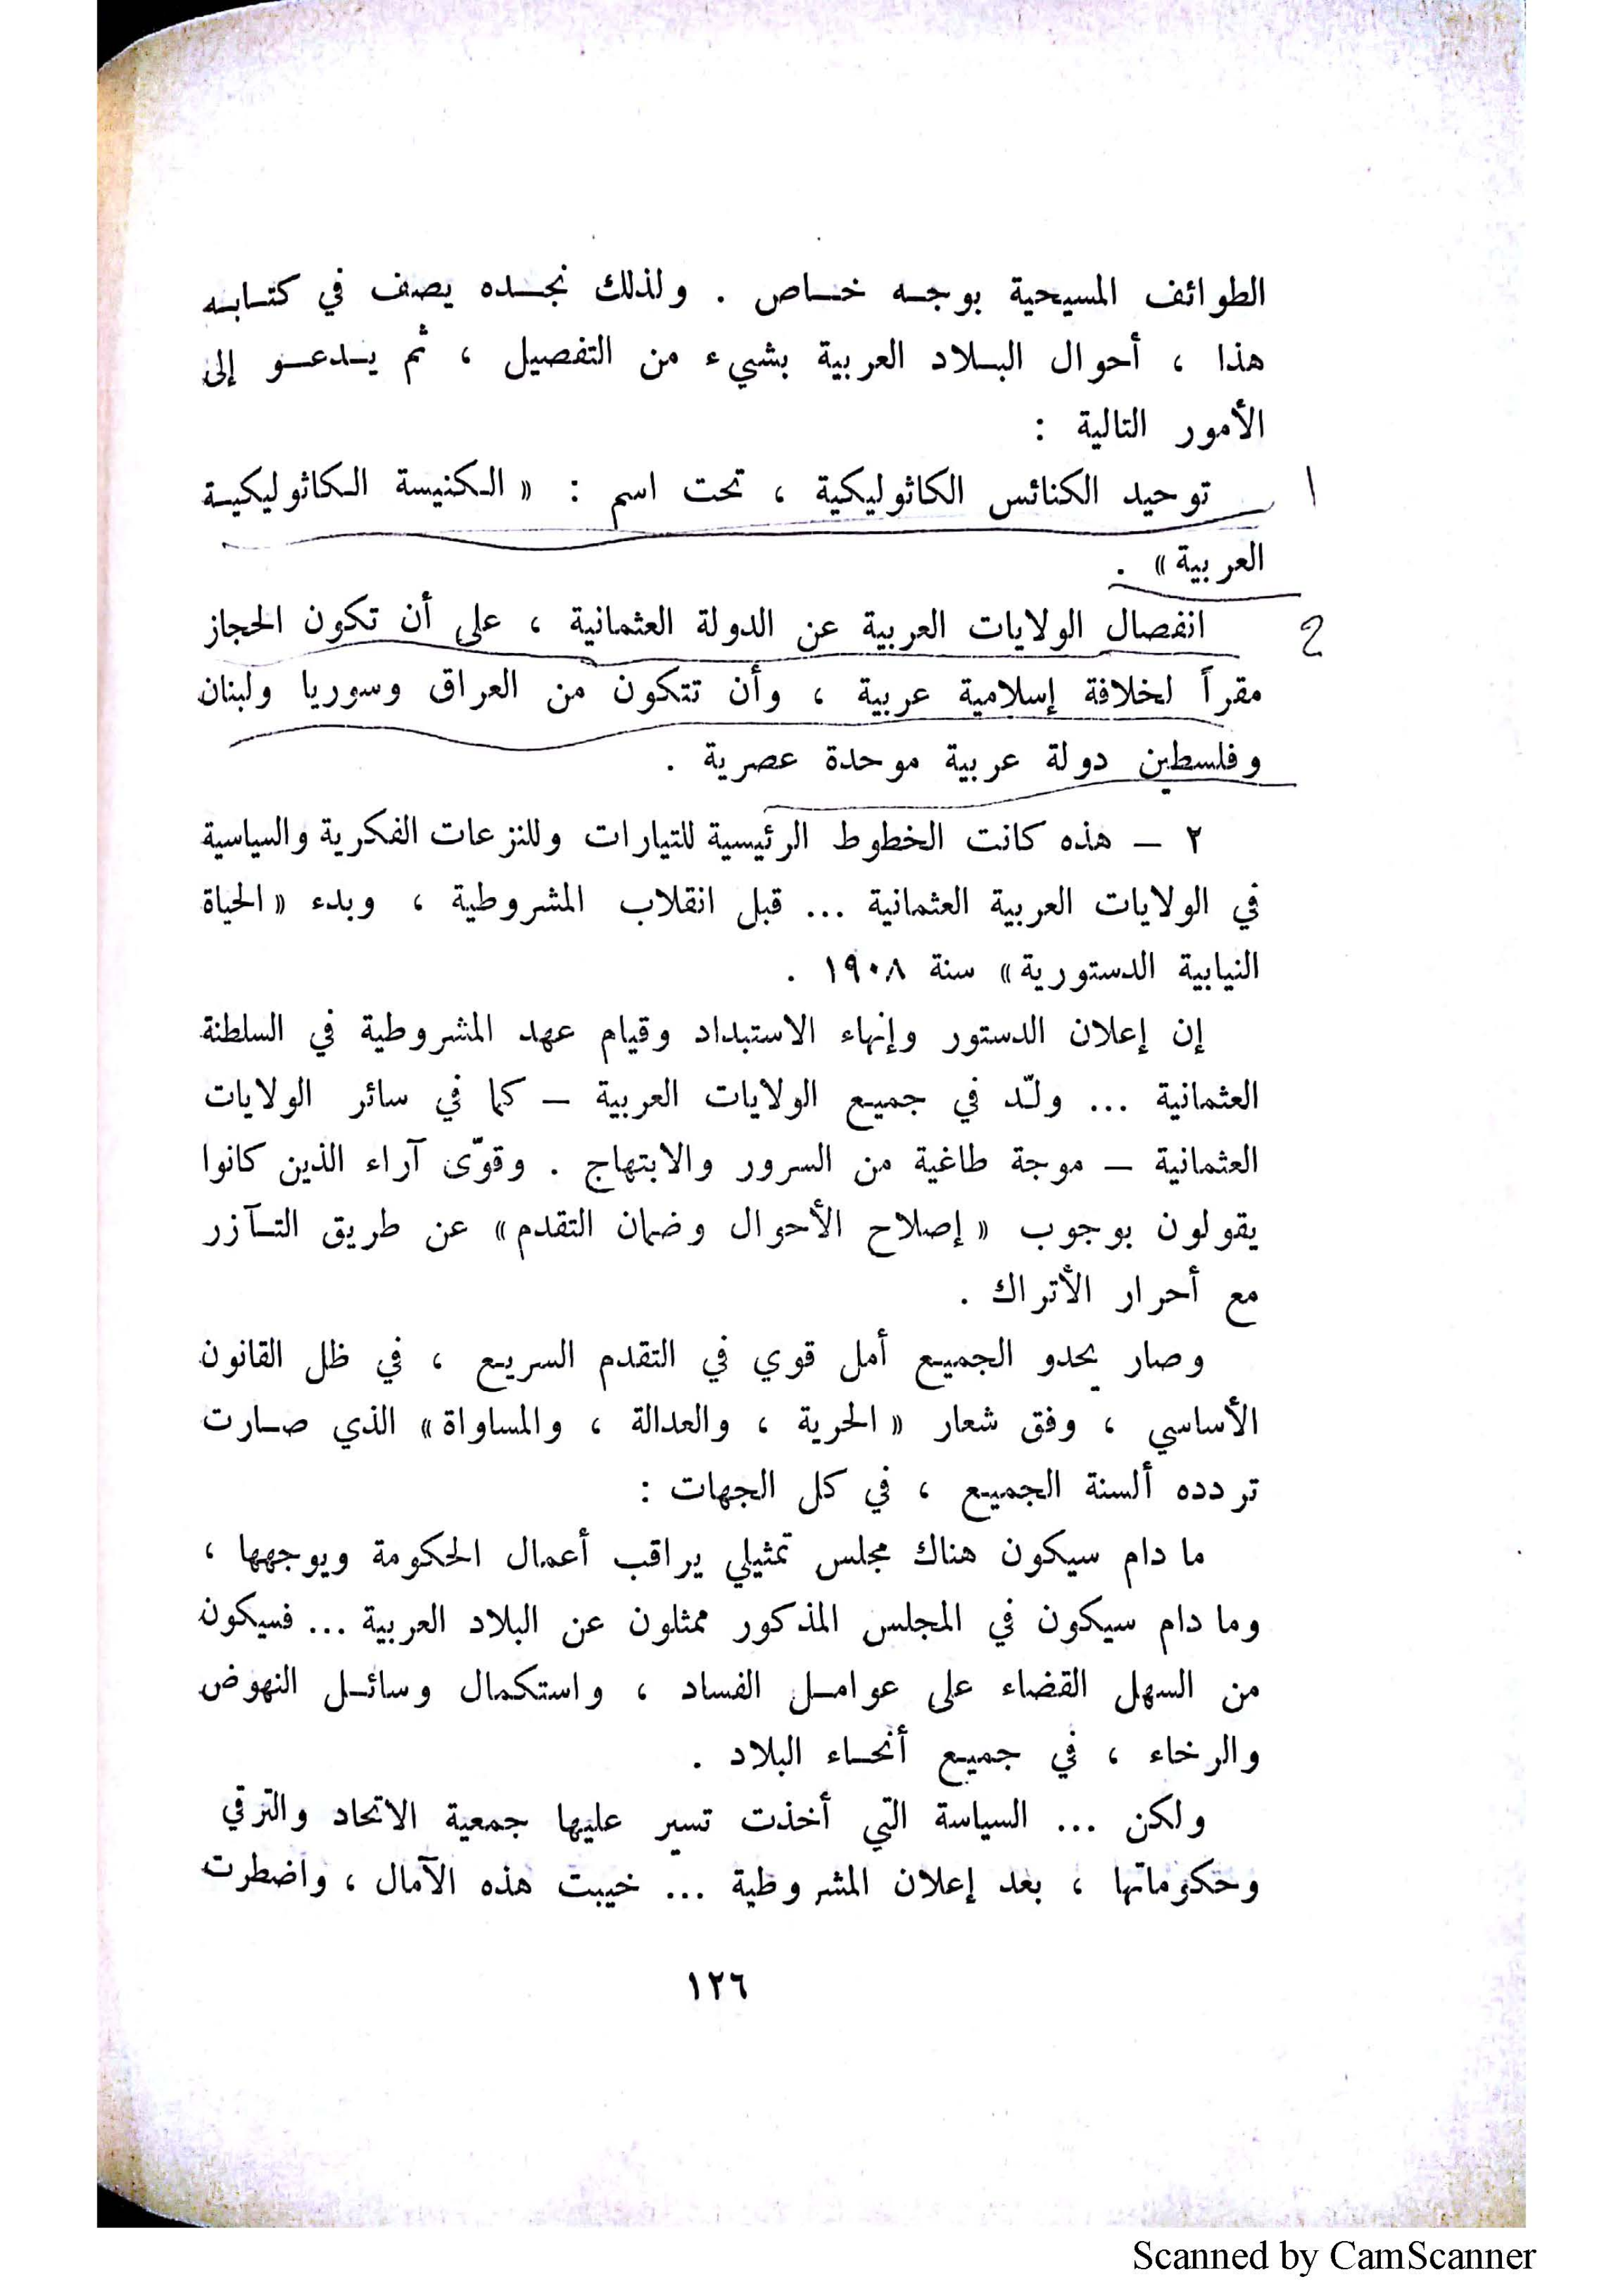 الطوائف المسيحية بوجه خاص . ولذلك نجده يصف في كتابه
هذا ، أحوال البلاد العربية بشيء من التفصيل ، ثم يدعو إلى
الأمور التالية :
1
توحيد الكنائس الكاثوليكية ، تحت اسم : « الكنيسة الكاثوليكية
العربية » .
2
انفصال الولايات العربية عن الدولة العثمانية ، على أن تكون الحجاز
مقراً لخلافة إسلامية عربية ، وأن تتكون من العراق وسوريا ولبنان
وفلسطين دولة عربية موحدة عصرية .
٢ – هذه كانت الخطوط الرئيسية للتيارات وللنزعات الفكرية والسياسية
في الولايات العربية العثمانية ... قبل انقلاب المشروطية ، وبدء « الحياة
النيابية الدستورية » سنة ١٩٠٨ .
إن إعلان الدستور وإنهاء الاستبداد وقيام عهد المشروطية في السلطنة
العثمانية ... ولّد في جميع الولايات العربية – كما في سائر الولايات
العثمانية – موجة طاغية من السرور والابتهاج . وقوّى آراء الذين كانوا
يقولون بوجوب « إصلاح الأحوال وضمان التقدم » عن طريق التآزر
مع أحرار الأتراك .
وصار يحدو الجميع أمل قوي في التقدم السريع ، في ظل القانون
الأساسي ، وفق شعار « الحرية ، والعدالة ، والمساواة » الذي صارت
تردده ألسنة الجميع ، في كل الجهات :
ما دام سيكون هناك مجلس تمثيلي يراقب أعمال الحكومة ويوجهها ،
وما دام سيكون في المجلس المذكور ممثلون عن البلاد العربية ... فسيكون
من السهل القضاء على عوامل الفساد ، واستكمال وسائل النهوض
والرخاء ، في جميع أنحاء البلاد .
ولكن ... السياسة التي أخذت تسير عليها جمعية الاتحاد والترقي
وحكوماتها ، بعد إعلان المشروطية ... خيبت هذه الآمال ، واضطرت
١٢٦
Scanned by CamScanner